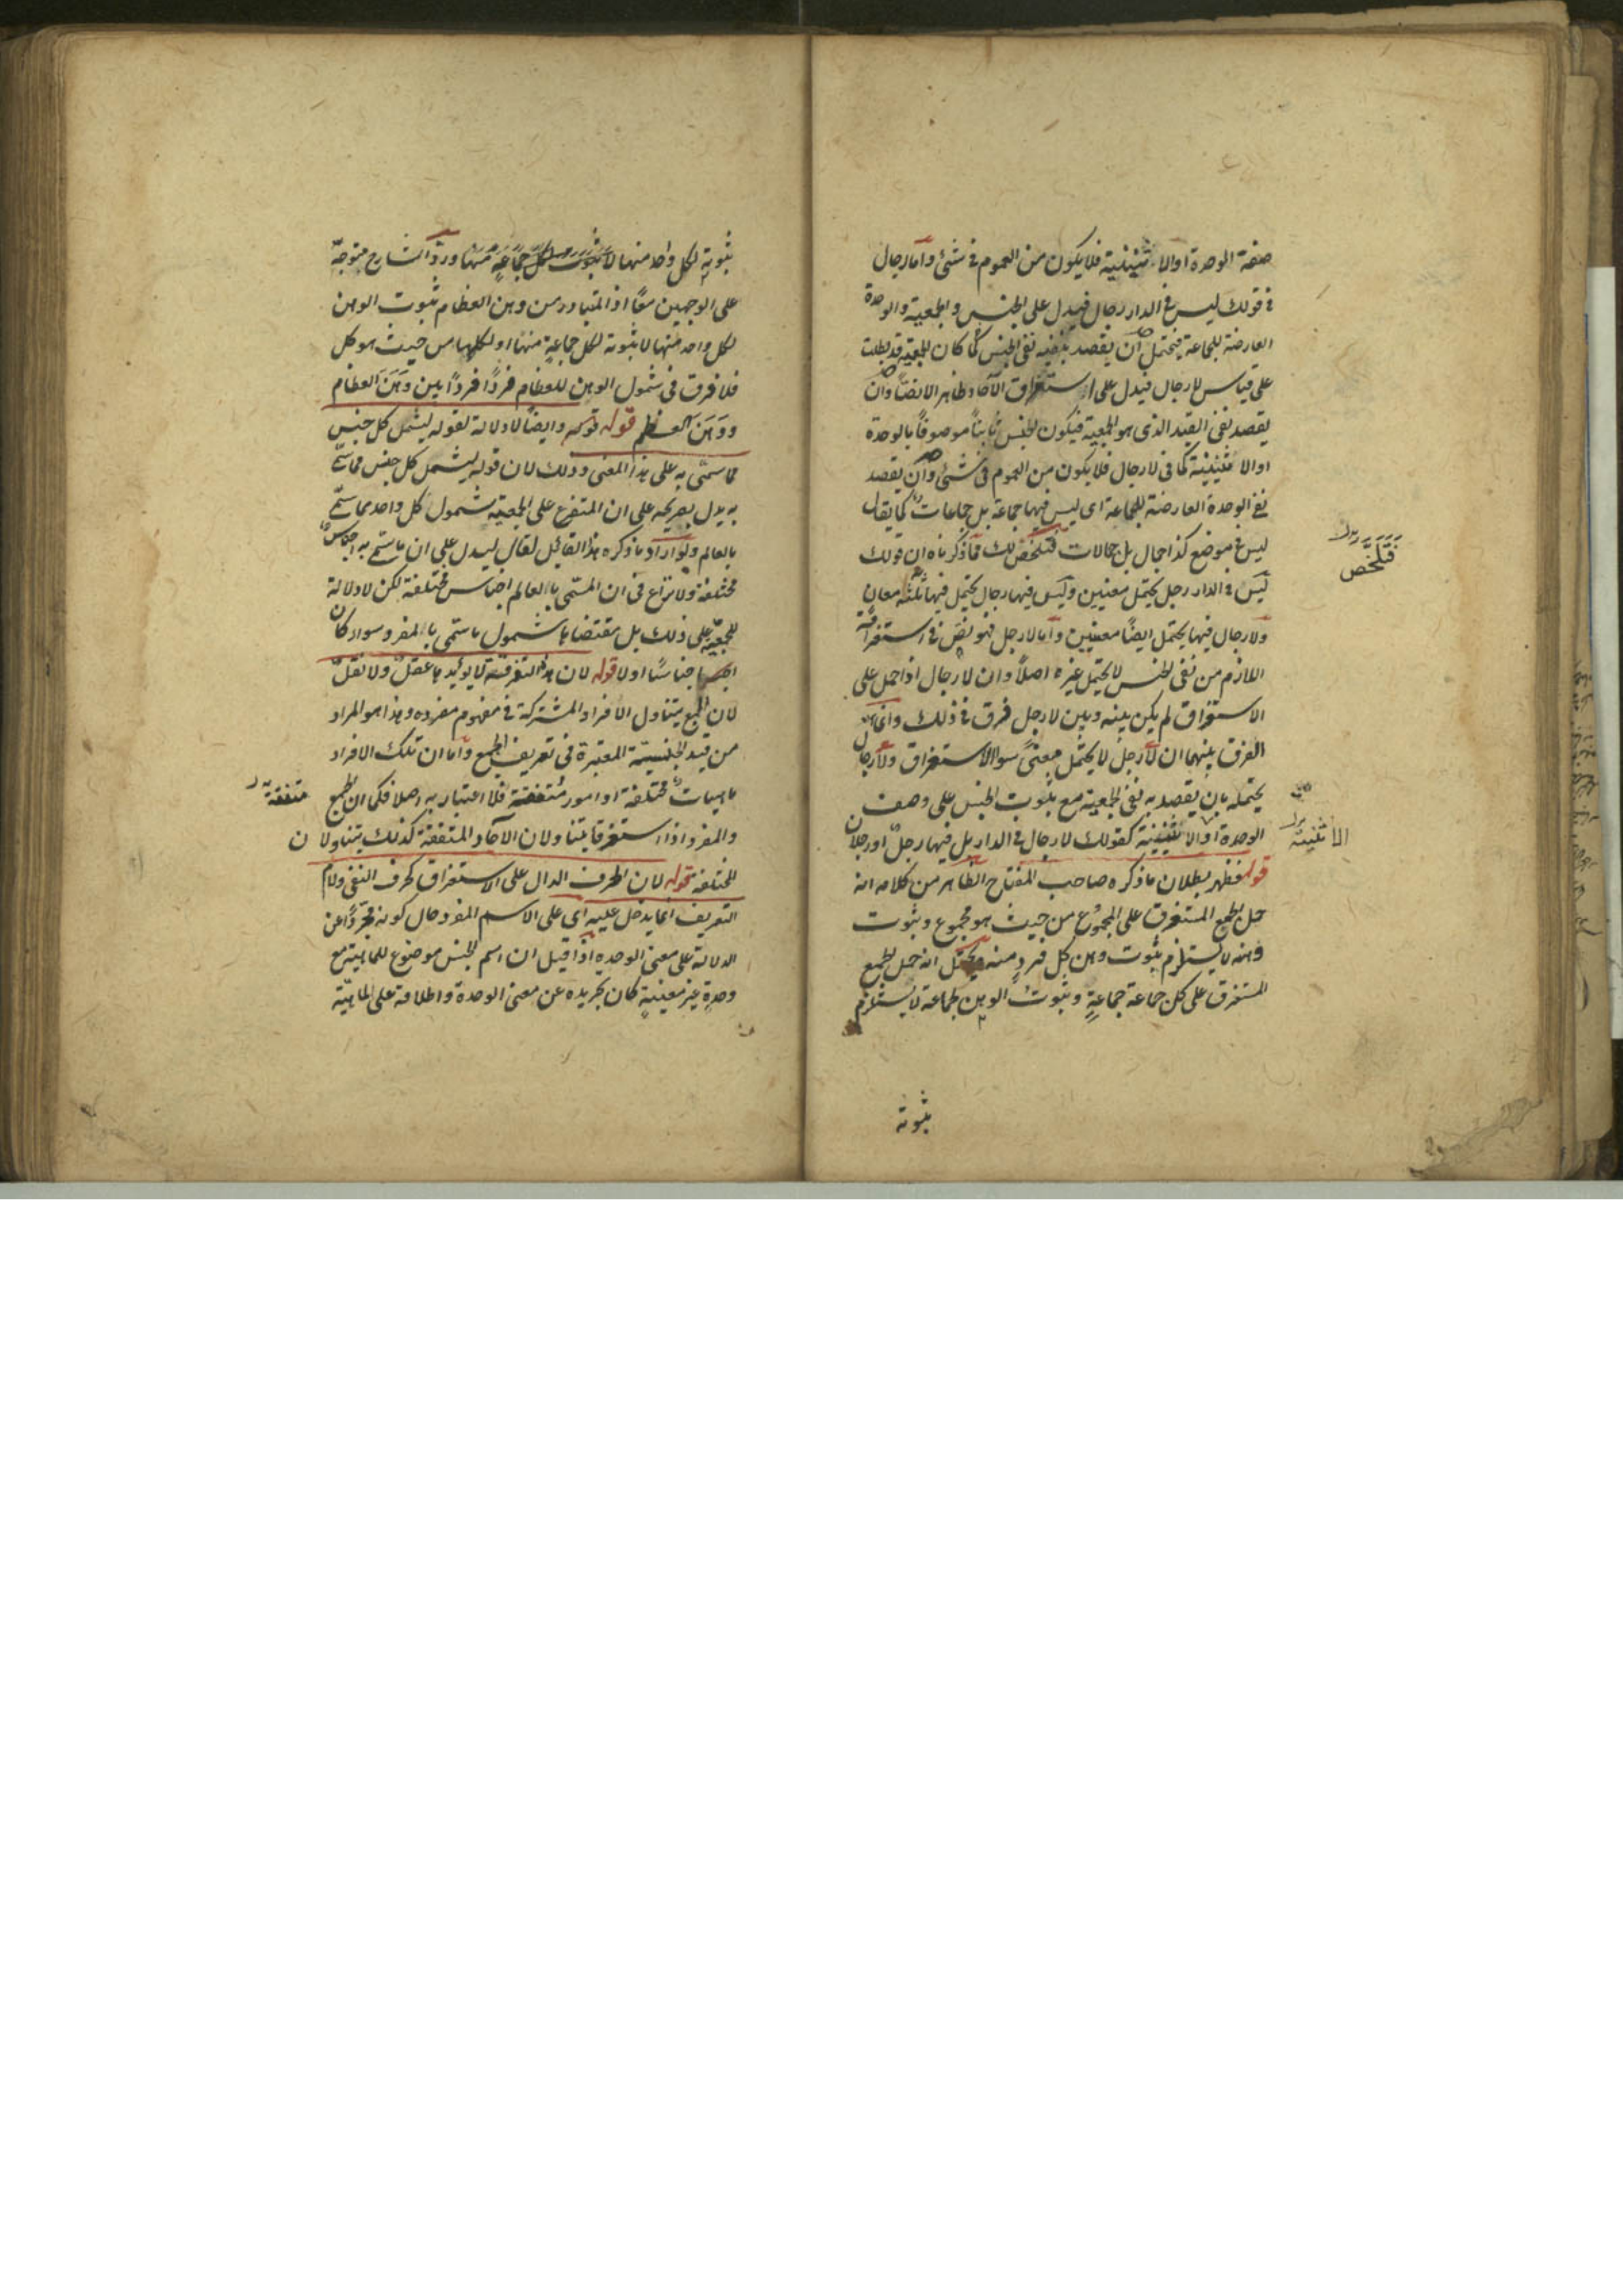 صفة الوحدة او الاثنينية فلا يكون من العموم في شئ واما رجال
في قولك ليس في الدار رجال فيدل على الجنس والجمعية والوحدة
العارضة للجماعة فيحتمل ان يقصد بنفيه نفى الجنس كما كان للجمعية قد بطلت
على قياس لا رجال فيدل على استغراق الآحاد ظاهرا لا نصا وان
يقصد نفى القيد الذى هو الجمعية فيكون الجنس ثابتاً موصوفاً بالوحدة
او الاثنينية كما في لا رجال فلا يكون من العموم في شئ وان يقصد
نفى الوحدة العارضة للجماعة اى ليس فيها جماعة بل جماعات كما يقال
ليس في موضع كذا جمال بل جمالات فتلخص لك مما ذكرناه ان قولك
فتلخص
ليس في الدار رجل يحتمل معنيين وليس فيها رجال يحتمل فيها ثلثة معان
ولا رجال فيها يحتمل ايضاً معنيين واما لا رجل فهو نص في استغراقه
اللازم من نفى الجنس لا يحتمل غيره اصلاً وان لا رجال اذا حمل على
الاستغراق لم يكن بينه وبين لا رجل فرق في ذلك وانما
الفرق بينهما ان لا رجل لا يحتمل معنىً سوا الاستغراق ولا رجال
يحتمله بان يقصد به نفى الجمعية مع ثبوت الجنس على وصف
الوحدة او الاثنينية كقولك لا رجال في الدار بل فيها رجل او رجلان
الاثنينية
قوله فظهر بطلان ما ذكره صاحب المفتاح الظاهر من كلامه انه
حمل الجمع المستغرق على المجموع من حيث هو مجموع وثبوت
وهنه لا يستلزم ثبوت وهن كل فرد منه ويحتمل انه حمل الجمع
المستغرق على كل جماعة جماعةٍ وثبوت الوهن لجماعة لا يستلزم
ثبوته
ثبوته لكل واحد منها لا ثبوت لكل جماعة منها ورد الشارح متوجه
على الوجهين معاً اذ المتبادر من وهن العظام ثبوت الوهن
لكل واحد منها لا ثبوته لكل جماعة منها او لكلها من حيث هو كل
فلا فرق في شمول الوهن للعظام فرداً فرداً بين وهن العظام
ووهن العظم قوله قوله وايضاً لا دلالة لقوله ليشمل كل جنس
مما سمى به على هذا المعنى وذلك لان قوله ليشمل كل جنس مما سمى
به يدل بصريحه على ان المتفرع على الجمعية شمول كل واحد مما سمى
بالعالم ولو اراد ما ذكره هذا القائل لقال ليدل على ان ما سمى به اجناس
مختلفة ولا نزاع في ان المسمى بالعالم اجناس مختلفة لكن لا دلالة
للجمعية على ذلك بل مقتضاها شمول ما سمى بالمفرد سواء كان
اجناساً اولا قوله لان هذا التفرقة لا يؤيدها عقل ولا نقل
لان الجمع يتناول الافراد المشتركة في مفهوم مفرده وهذا هو المراد
من قيد الجنسية المعتبرة في تعريف الجمع واما ان تلك الافراد
ماهيات مختلفة او امور متفقة فلا اعتبار به اصلا فكما ان الجمع
متفقة
والمفرد اذا استغرقا يتناولان الآحاد المتفقة كذلك يتناولان
المختلفة قوله لان الحرف الدال على الاستغراق كحرف النفى ولام
التعريف انما يدخل عليه اى على الاسم المفرد حال كونه مجرداً عن
الدلالة على معنى الوحدة اذا قيل ان اسم الجنس موضوع للماهية مع
وحدةٍ غير معينةٍ كان تجريده عن معنى الوحدة واطلاقه على الماهية